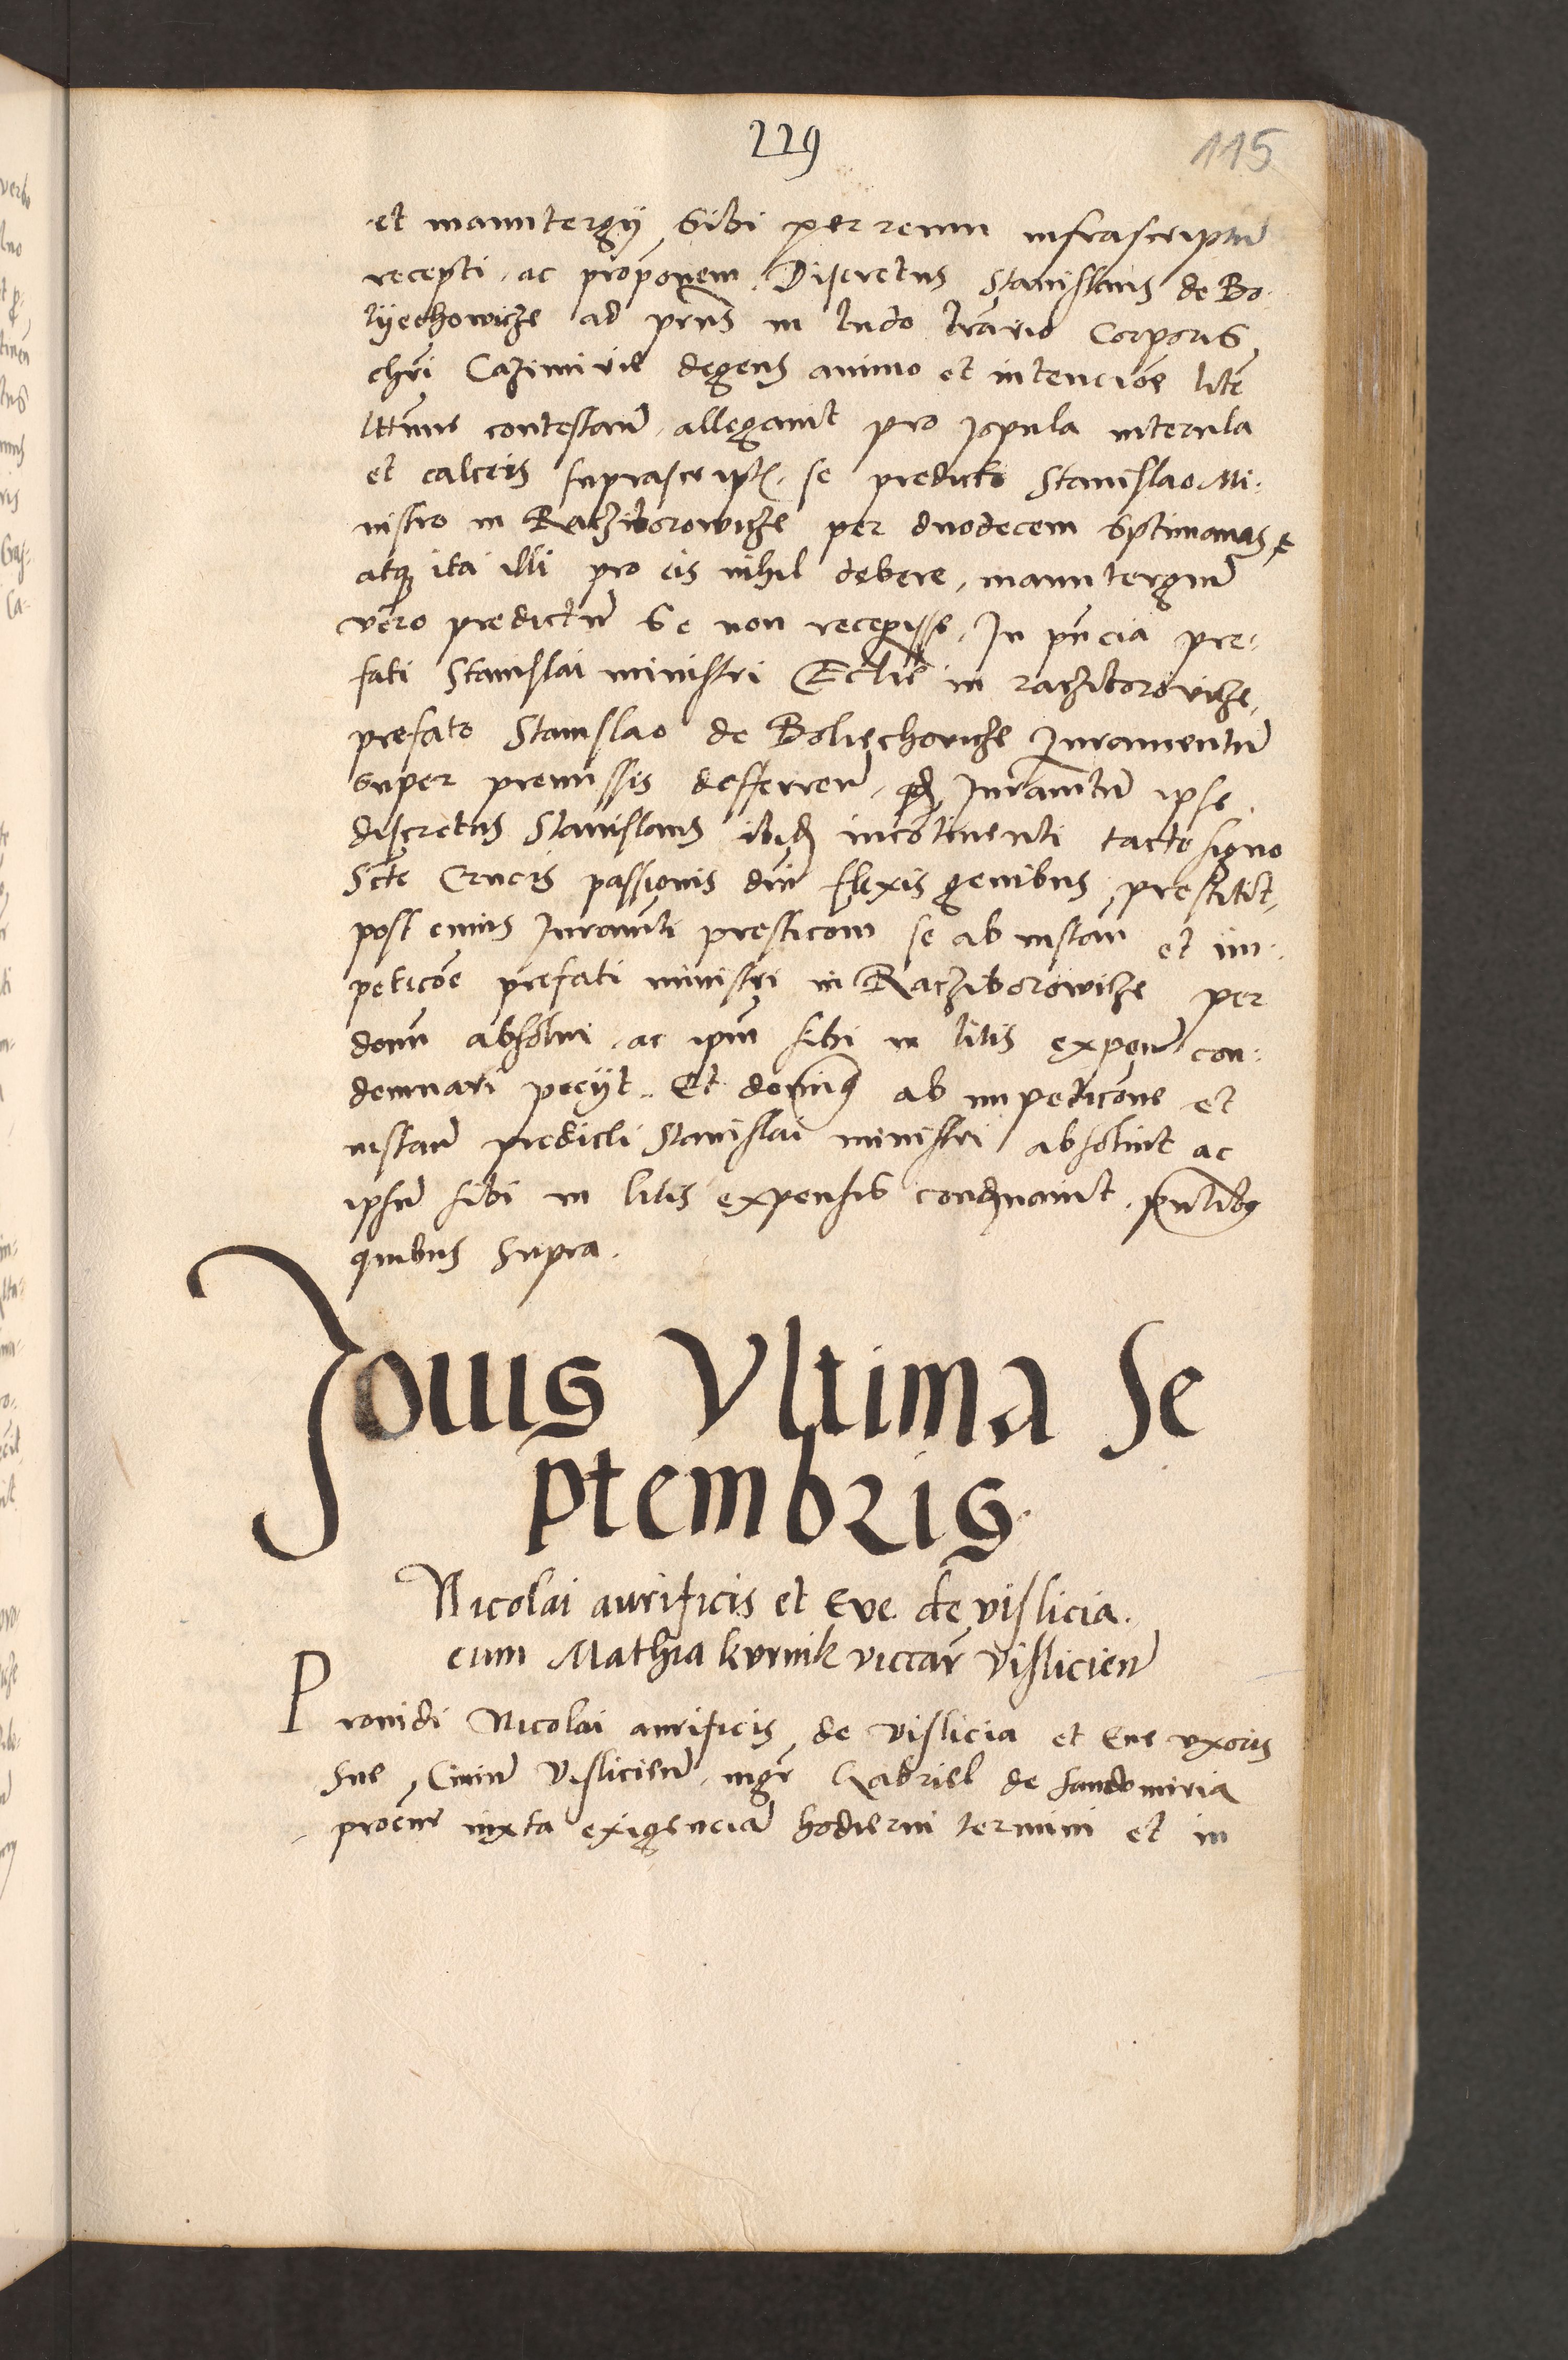 229
115
et manutergy sibi per reum infrascriptū
recepti, ac proponem. Discretus Stanislaus de Bo-
lyechowicze ad prns in ludo lrārio Corporis
chri Cazimirie degens animo et intencioē litē
contestanͫ allegavit pro jopula interula
et calceis suprascript, se predicto Stanislao Mi-
nistro in Racziborowicze per duodecem septimanas
atqȝ ita illi pro eis nihil debere, manutergiū
vero predictū se non recepisse. In pn̄cia pre-
fati Stanislai ministri Ecclie in racziborovicze,
prefato Stanislao de Bolyechovicze Juramentū
super premissis defferreñ, qd Juramtū ipse
discretus Stanislaus ibid incōtinenti tacto signo
Scte Crucis passionis dni flexis genibus prestitit,
post cuius Juramti presticoem se ab instan et im-
peticoe prefati ministri in Racziborowicze per
donn absolvi, ac ipm sibi in litis expen con-
demnari peciit. Et dominȝ ab impeticoñe et
instan predicti Stanislai ministri absolvit ac
ipsū sibi in litis expensis condnavit, pntibȝ
quibus supra.
Jovis Vltima Se
ptembris.
Nicolai aurificis et Eve de vislicia.
cum Mathia kurnik viccar Vislicien
Providi Nicolai aurificis de vislicia et Eve vxoris
Sue, Civiū Visliciēn, mgr Gabriel de sandomiria
procur iuxta exigenciā hodierni termini et in